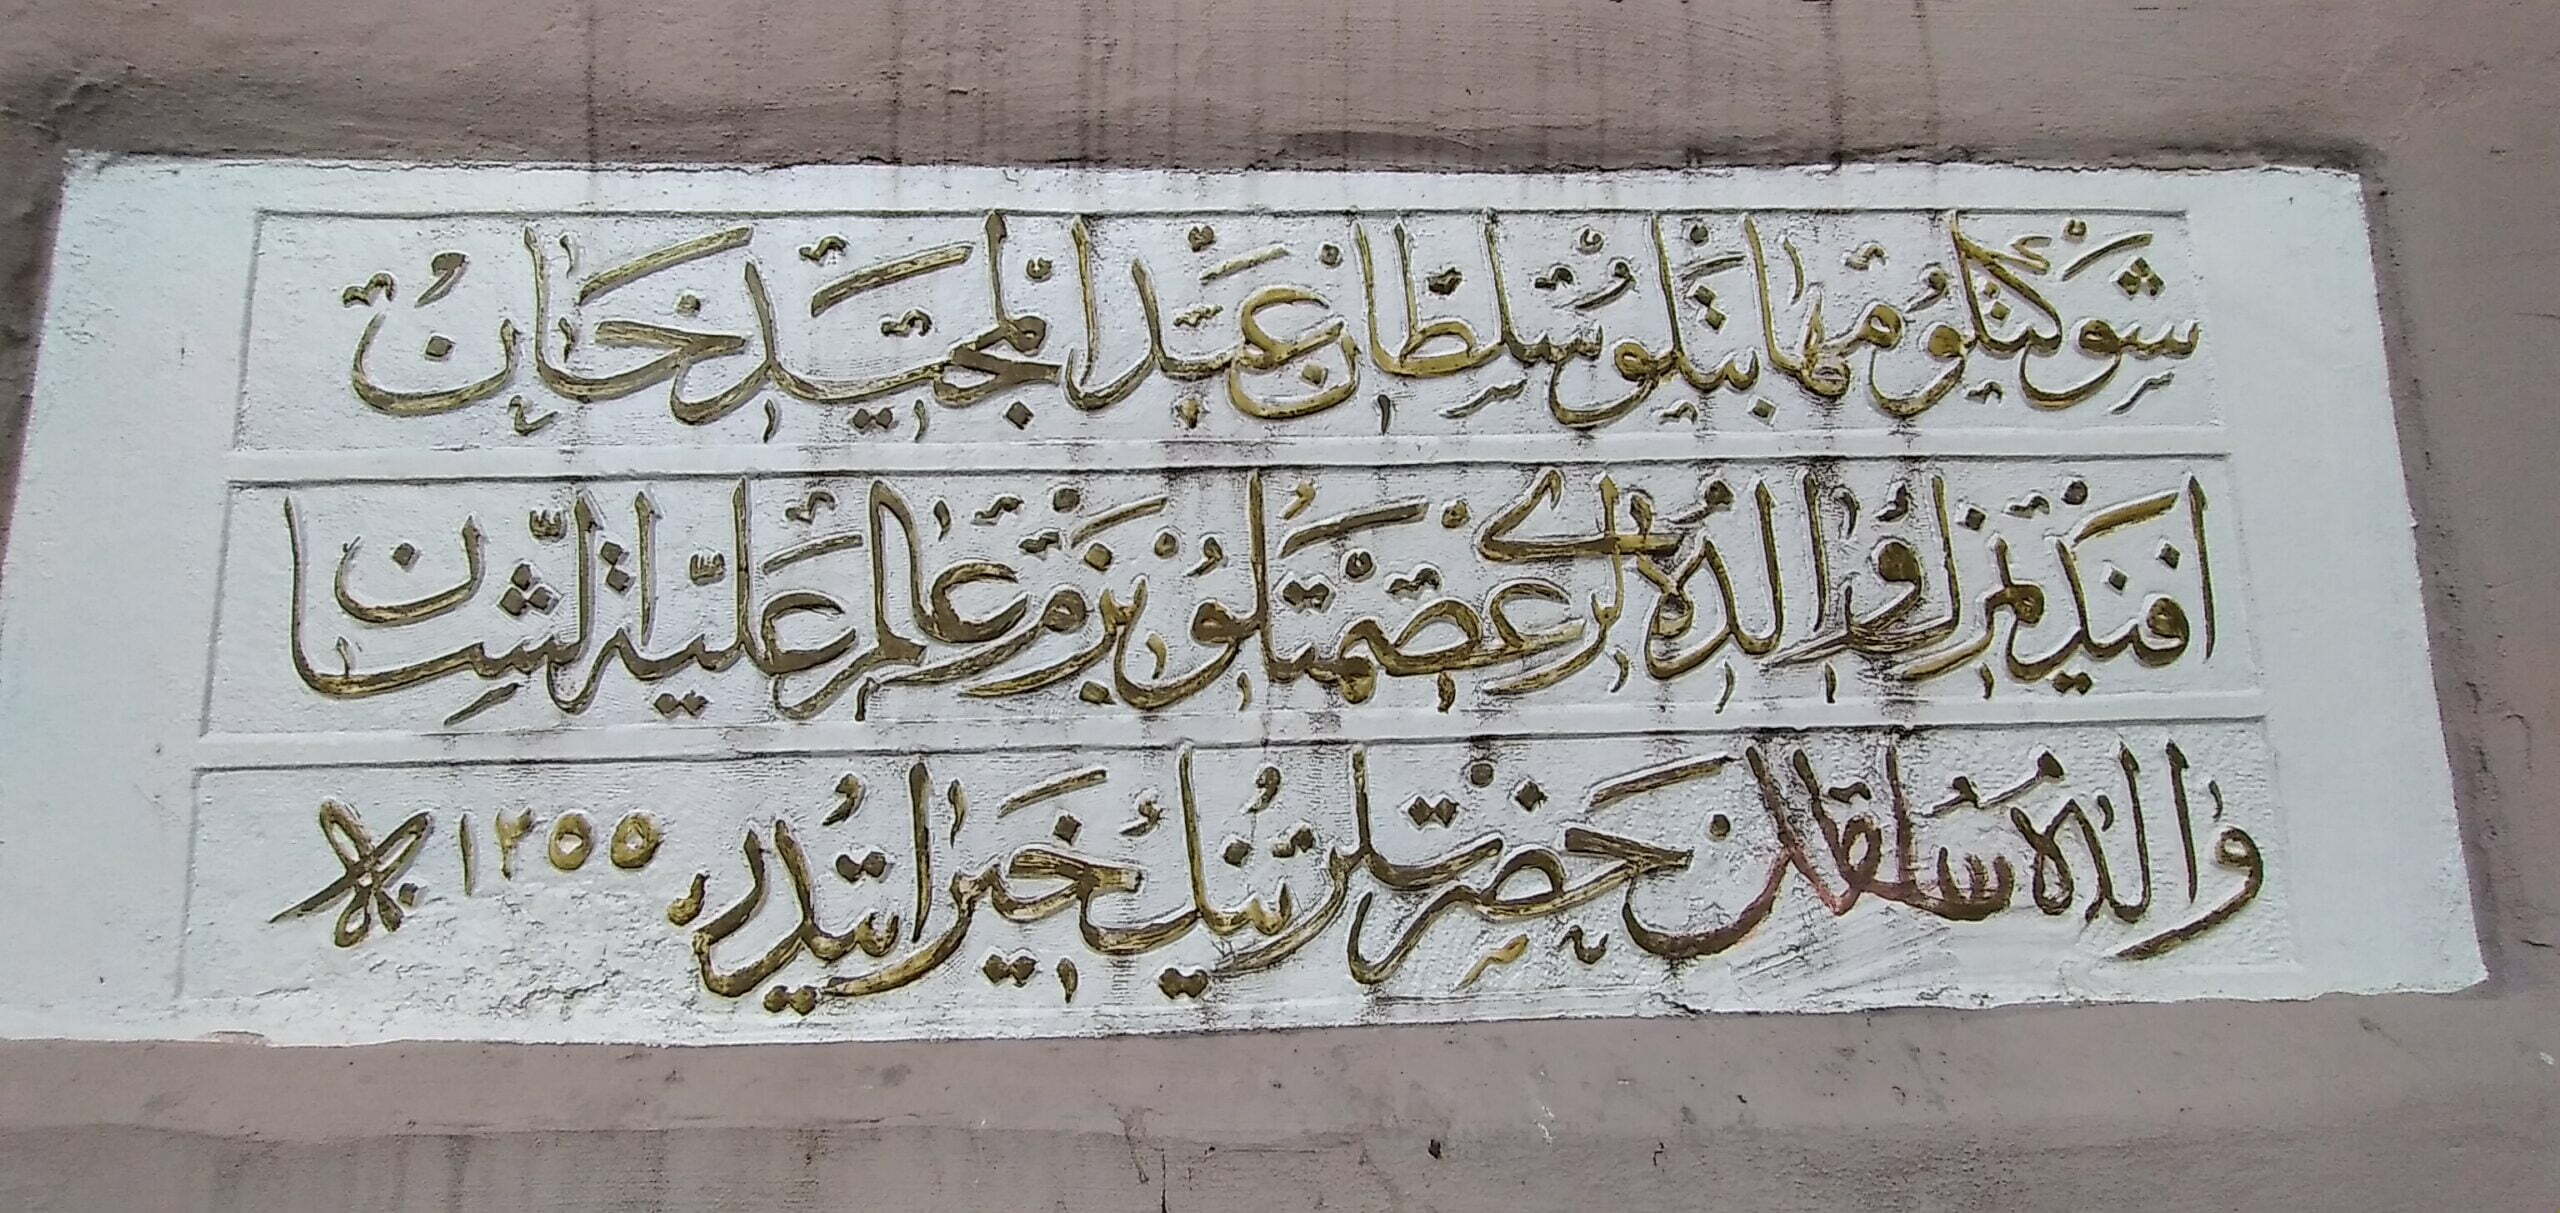 شوكتلو مهابتلو سلطان عبد المجيد خان
افنديمزك والده لرى عصمتلو بزم عالم علية الشان
والده سلطان حضرتلرينك خيراتيدر ١٢٥٥